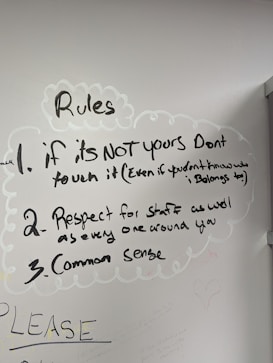 Rules
1. if its NOT yours Dont
touch it (Even if you dont know who
it Belongs to)
2. Respect for staff as well
as every one around you
3. Common Sense
PLEASE